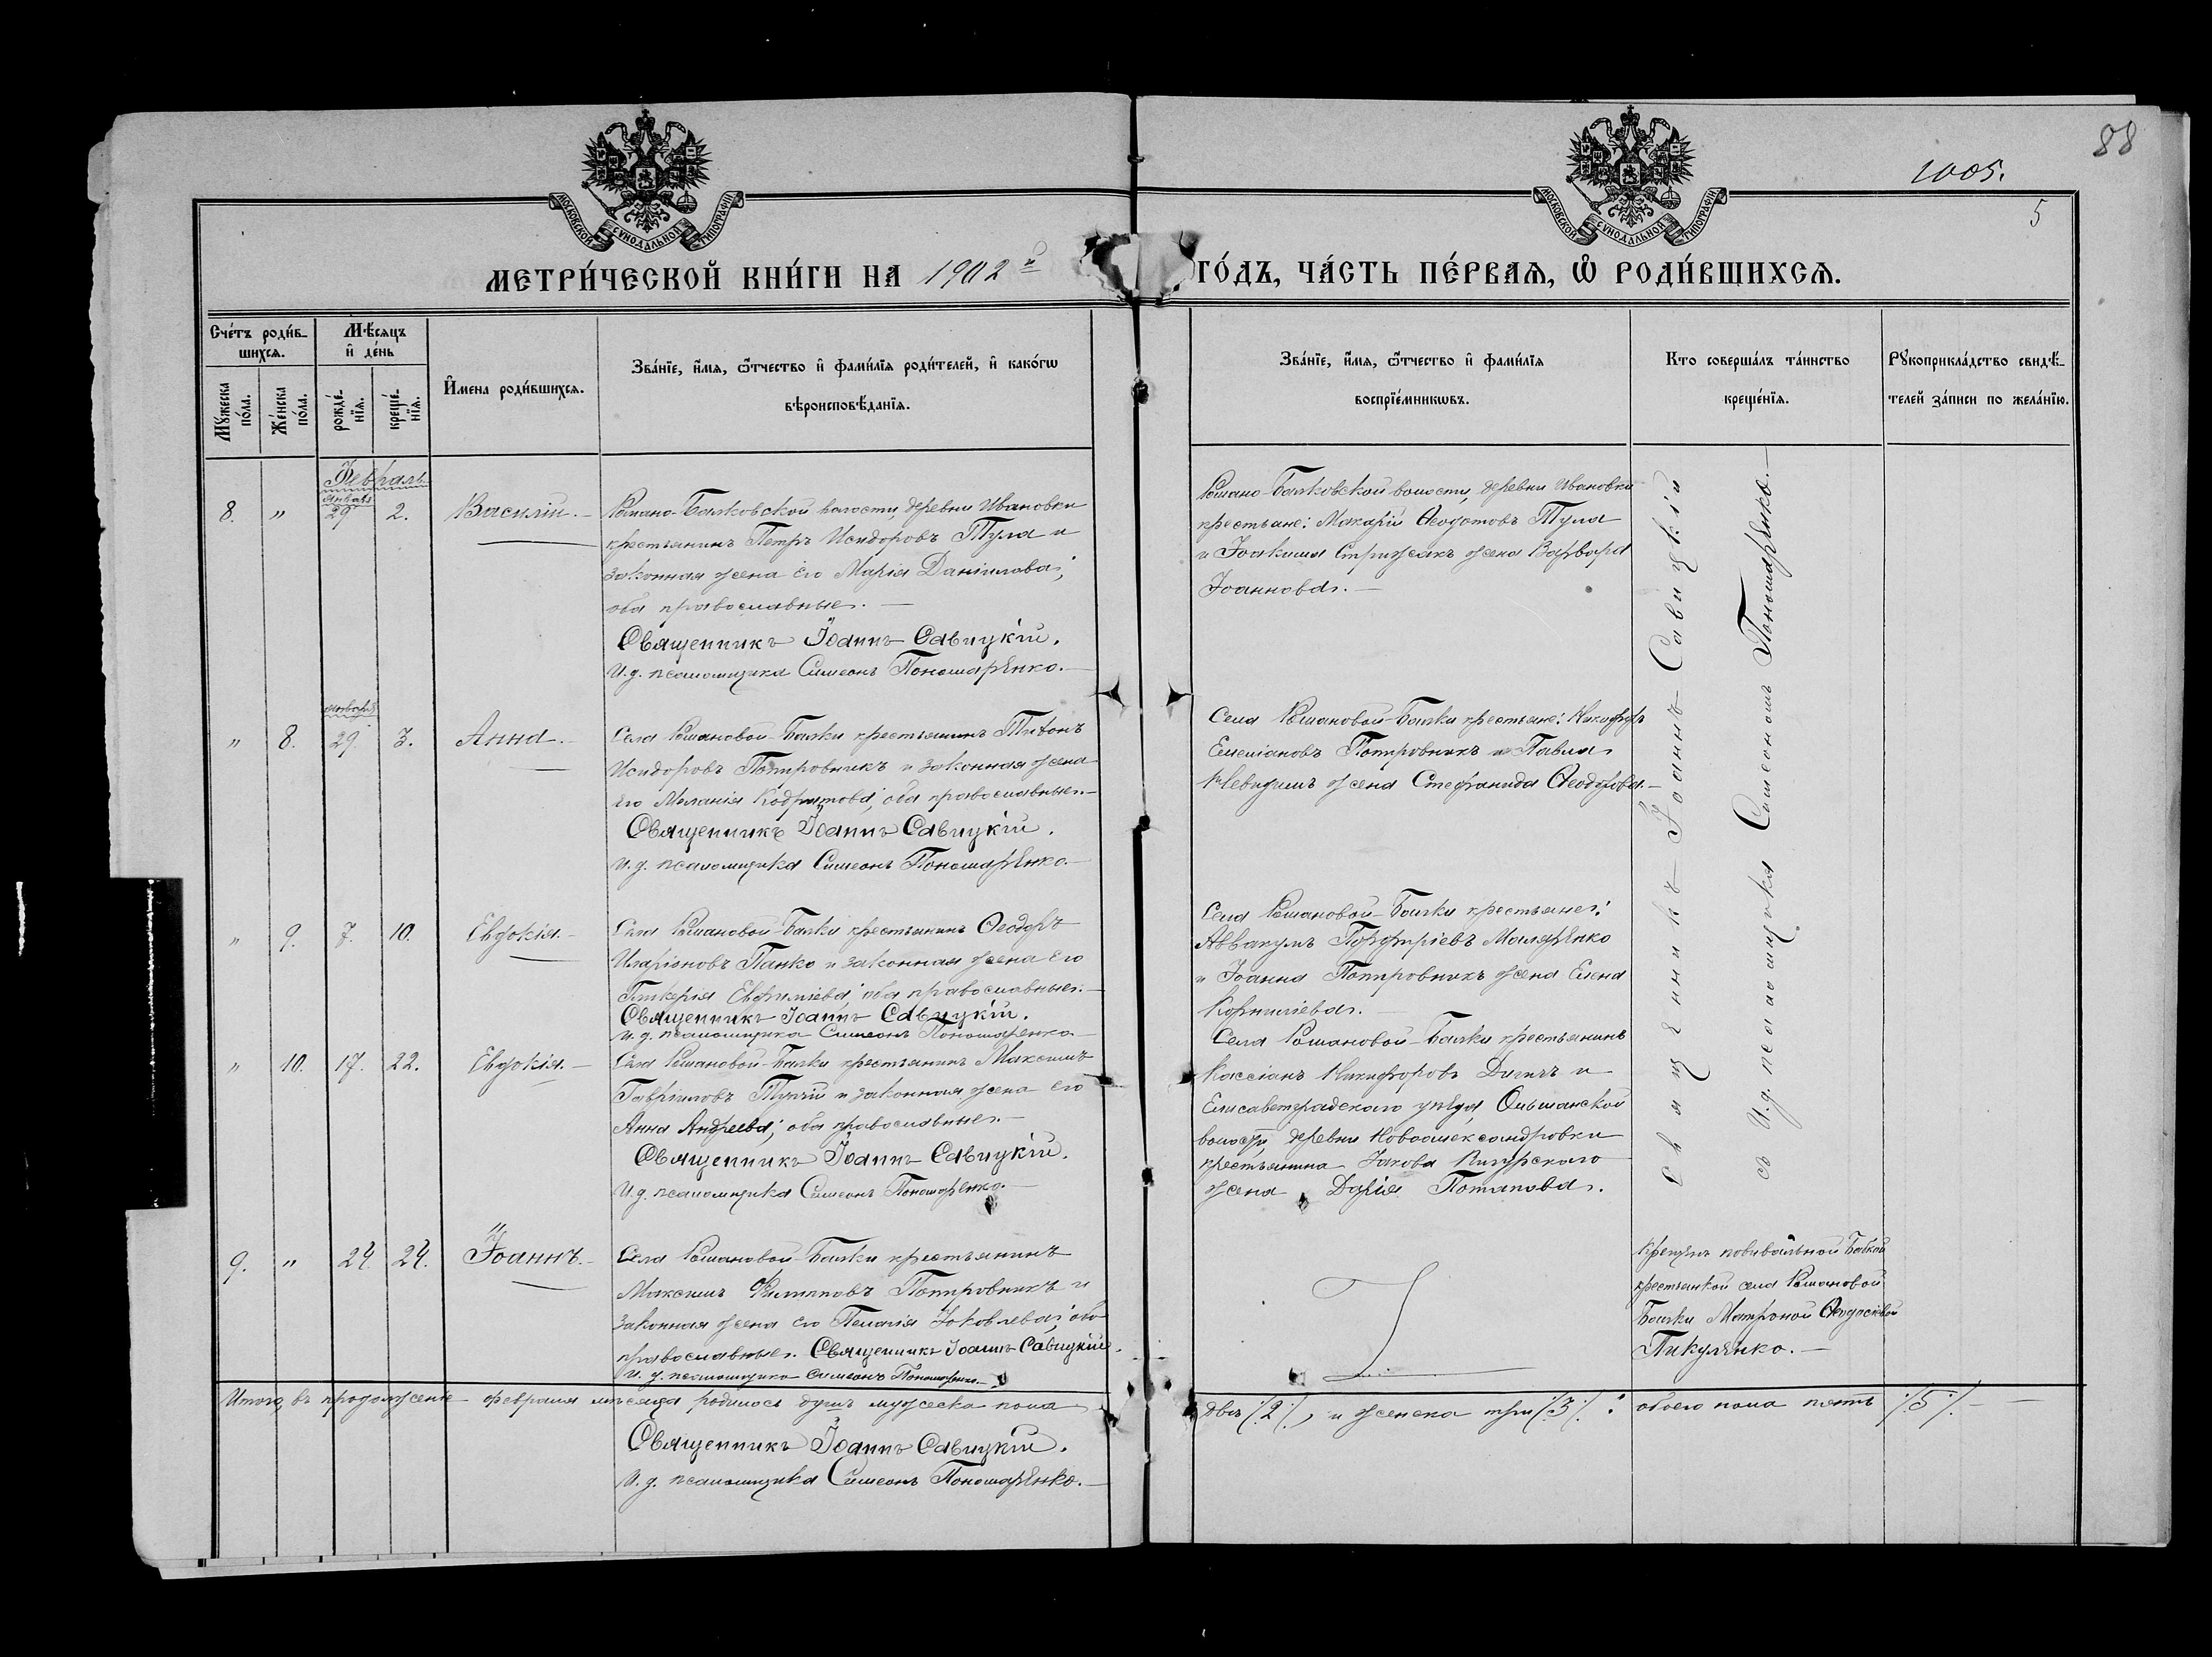 88
1005.
5
МОСКОВСКОЙ СѴНОДАЛЬНОЙ ТИПОГРАФІИ
МОСКОВСКОЙ СѴНОДАЛЬНОЙ ТИПОГРАФІИ
МЕТРИ́ЧЕСКОЙ КНИ́ГИ НА 1902й
ГО́ДЪ, ЧА́СТЬ ПЕ́РВАЯ, Ѡ҆ РОДИ́ВШИХСЯ.
Сче́тъ роди́в-
шихся.
Мѣ́сяцъ
и҆ де́нь
Мꙋ́жеска
по́ла.
Же́нска
по́ла.
рожде́-
нїя.
креще́-
нїя.
И҆мена роди́вшихся.
Зва́нїе, и҆́мя, ѻ҆́тчество и҆ фами́лїя роди́телей, и҆ како́гѡ
вѣроисповѣ́данїя.
Зва́нїе, и҆́мя, ѻ҆́тчество и҆ фами́лїя
воспрїе́мникѡвъ.
Кто соверша́лъ та́инство
креще́нїя.
Рꙋкоприкла́дство свидѣ́-
телей за́писи по жела́нїю.
Февраль.
январь
8. " 29 2. Василій.
Романо-Балковской волости, деревни Ивановки
крестьянинъ Петръ Исидоровъ Тула и
законная жена его Марія Даніилова;
оба православные.
Священникъ Іоаннъ Савицкій.
И. д. псаломщика Симеонъ Пономаренко.
Романо-Балковской волости, деревни Ивановки
крестьяне: Макарій Ѳеодотовъ Тула
и Іоакима Стрижакъ жена Варвара
Іоаннова.
января
" 8. 29. 3. Анна.
Села Романовой-Балки крестьянинъ Титонъ
Исидоровъ Попировникъ и законная жена
его Меланія Кодратова; оба православные.
Священникъ Іоаннъ Савицкій.
И. д. псаломщика Симеонъ Пономаренко.
Села Романовой-Балки крестьяне: Никифоръ
Емеліановъ Попировникъ и Павла
Невидимъ жена Стефанида Ѳеодорова.
" 9. 7. 10. Евдокія.
Села Романовой-Балки крестьянинъ Ѳеодоръ
Иларіоновъ Панко и законная жена его
Гликерія Евфиміева; оба православные.
Священникъ Іоаннъ Савицкій.
И. д. псаломщика Симеонъ Пономаренко.
Села Романовой-Балки крестьяне:
Аввакумъ Порфиріевъ Моляренко
и Іоанна Попировникъ жена Елена
Корниліева.
" 10. 17. 22. Евдокія.
Села Романовой-Балки крестьянинъ Максимъ
Гавріиловъ Тупчій и законная жена его
Анна Андреева; оба православные.
Священникъ Іоаннъ Савицкій.
И. д. псаломщика Симеонъ Пономаренко.
Села Романовой-Балки крестьянинъ
Кассіанъ Никифоровъ и
Елисаветградскаго уѣзда, Ольшанской
волости, деревни Новоалександровки
крестьянина Іакова
жена Дарія Потапова.
Священникъ Іоаннъ Савицкій
съ И. д. псаломщика Симеономъ Пономаренко.
9. " 24. 24. Іоаннъ.
Села Романовой-Балки крестьянинъ
Максимъ Филиповъ Попировникъ и
законная жена его Пелагія Іаковлева; оба
православные. Священникъ Іоаннъ Савицкій.
И. д. псаломщика Симеонъ Пономаренко.
Крещенъ повивальной бабкой
крестьянкой села Романовой
Балки Матроной Ѳеодосіевой
Пикуленко.
Итого, въ продолженіе февраля мѣсяца родилось душъ мужеска пола
два /2/, и женска три /3/: обоего пола пять /5/.
Священникъ Іоаннъ Савицкій.
И. д. псаломщика Симеонъ Пономаренко.